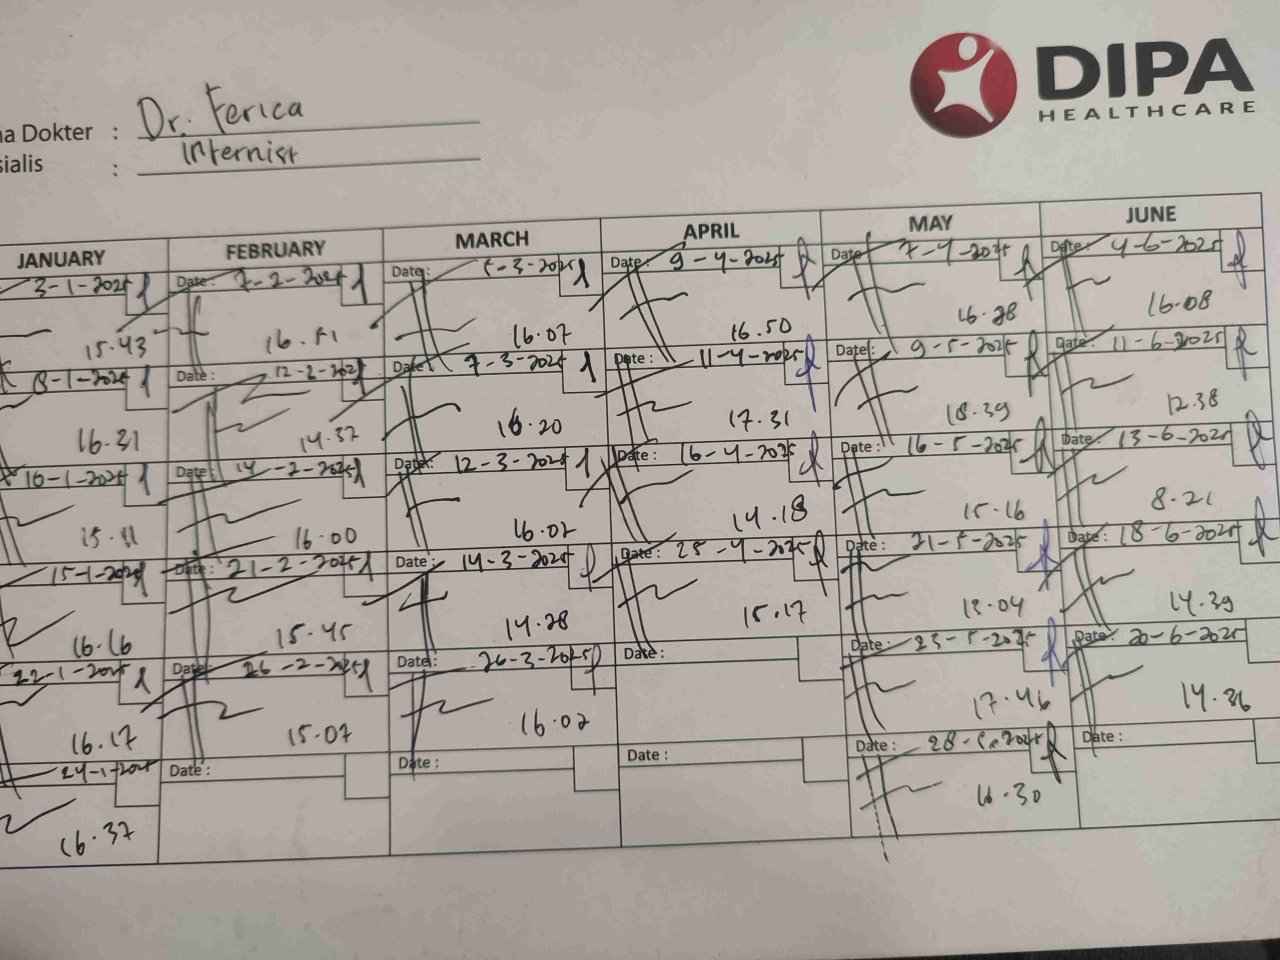 DIPA
HEALTHCARE
na Dokter : Dr. Ferica
sialis : Internist
JANUARY FEBRUARY MARCH APRIL MAY JUNE
3-1-2025 Date: 7-2-2025 Date: 5-3-2025 Date: 9-4-2025 Date: 7-4-2025 Date: 4-6-2025
15.43 16.51 16.07 16.50 16.28 16.08
8-1-2025 Date: 12-2-2025 Date: 7-3-2025 Date: 11-4-2025 Date: 9-5-2025 Date: 11-6-2025
16.31 14.37 16.20 17.31 18.39 12.38
10-1-2025 Date: 14-2-2025 Date: 12-3-2025 Date: 16-4-2025 Date: 16-5-2025 Date: 13-6-2025
15.11 16.00 16.02 14.18 15.16 8.21
15-1-2025 Date: 21-2-2025 Date: 14-3-2025 Date: 25-4-2025 Date: 21-5-2025 Date: 18-6-2025
16.16 15.45 14.28 15.17 14.39
22-1-2025 Date: 26-2-2025 Date: 26-3-2025 Date: Date: 23-5-2025 Date: 20-6-2025
16.17 15.07 16.02 17.46 14.36
24-1-2025 Date: Date: Date: Date: 28-5-2025 Date:
16.37 16.30